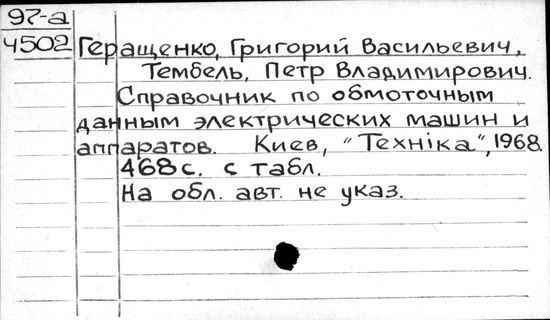 97-а
4502 Геращенко, Григорий Васильевич,
Тембель, Петр Владимирович.
Справочник по обмоточным
данным электрических машин и
аппаратов. Киев, "Технiка", 1968.
468 с. с табл.
На обл. авт. не указ.